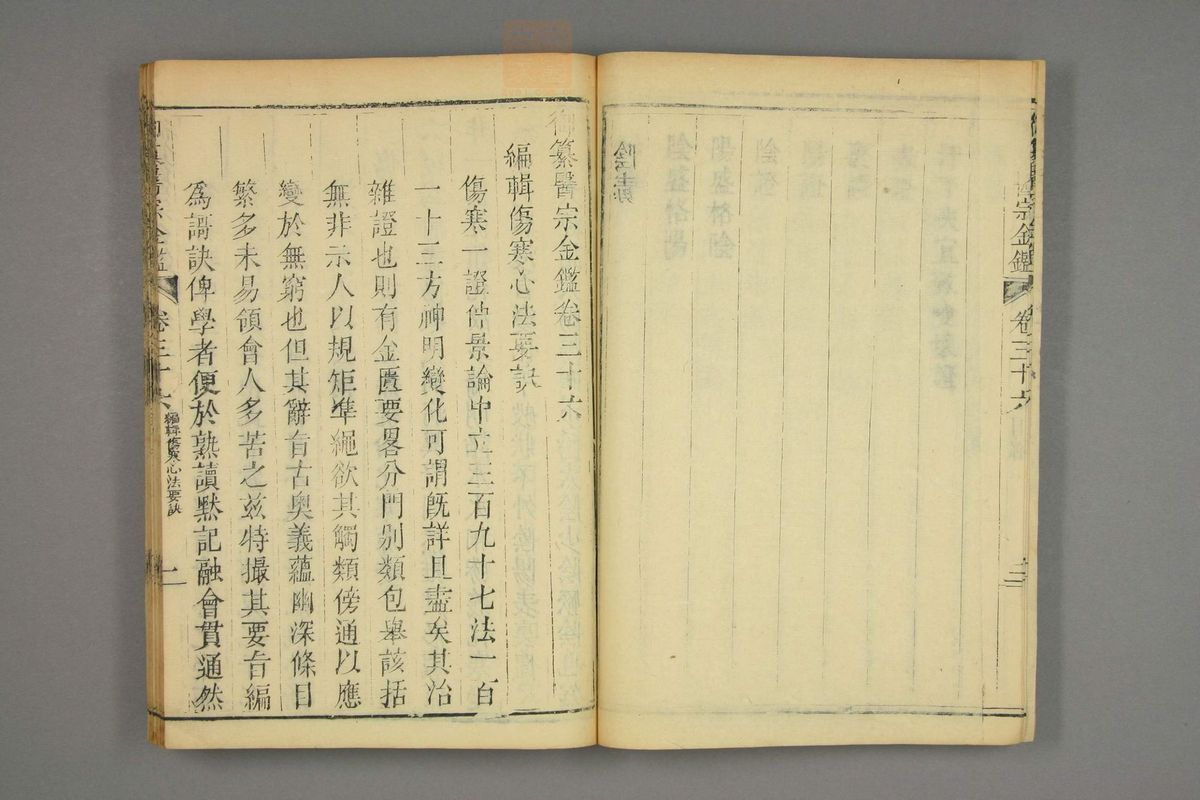 宗金鑑 卷三十六
陰毒
御纂醫宗金鑑卷三十六
編輯傷寒心法要訣
傷寒一證仲景論中立三百九十七法一百
一十三方神明變化可謂旣詳且盡矣其治
雜證也則有金匱要畧分門別類包舉該括
無非示人以規矩準繩欲其觸類傍通以應
變於無窮也但其辭旨古奧義蘊幽深條目
繁多未易領會人多苦之茲特撮其要旨編
為謌訣俾學者便於熟讀默記融會貫通然
宗金鑑 卷三十六 編輯傷寒心法要訣 一